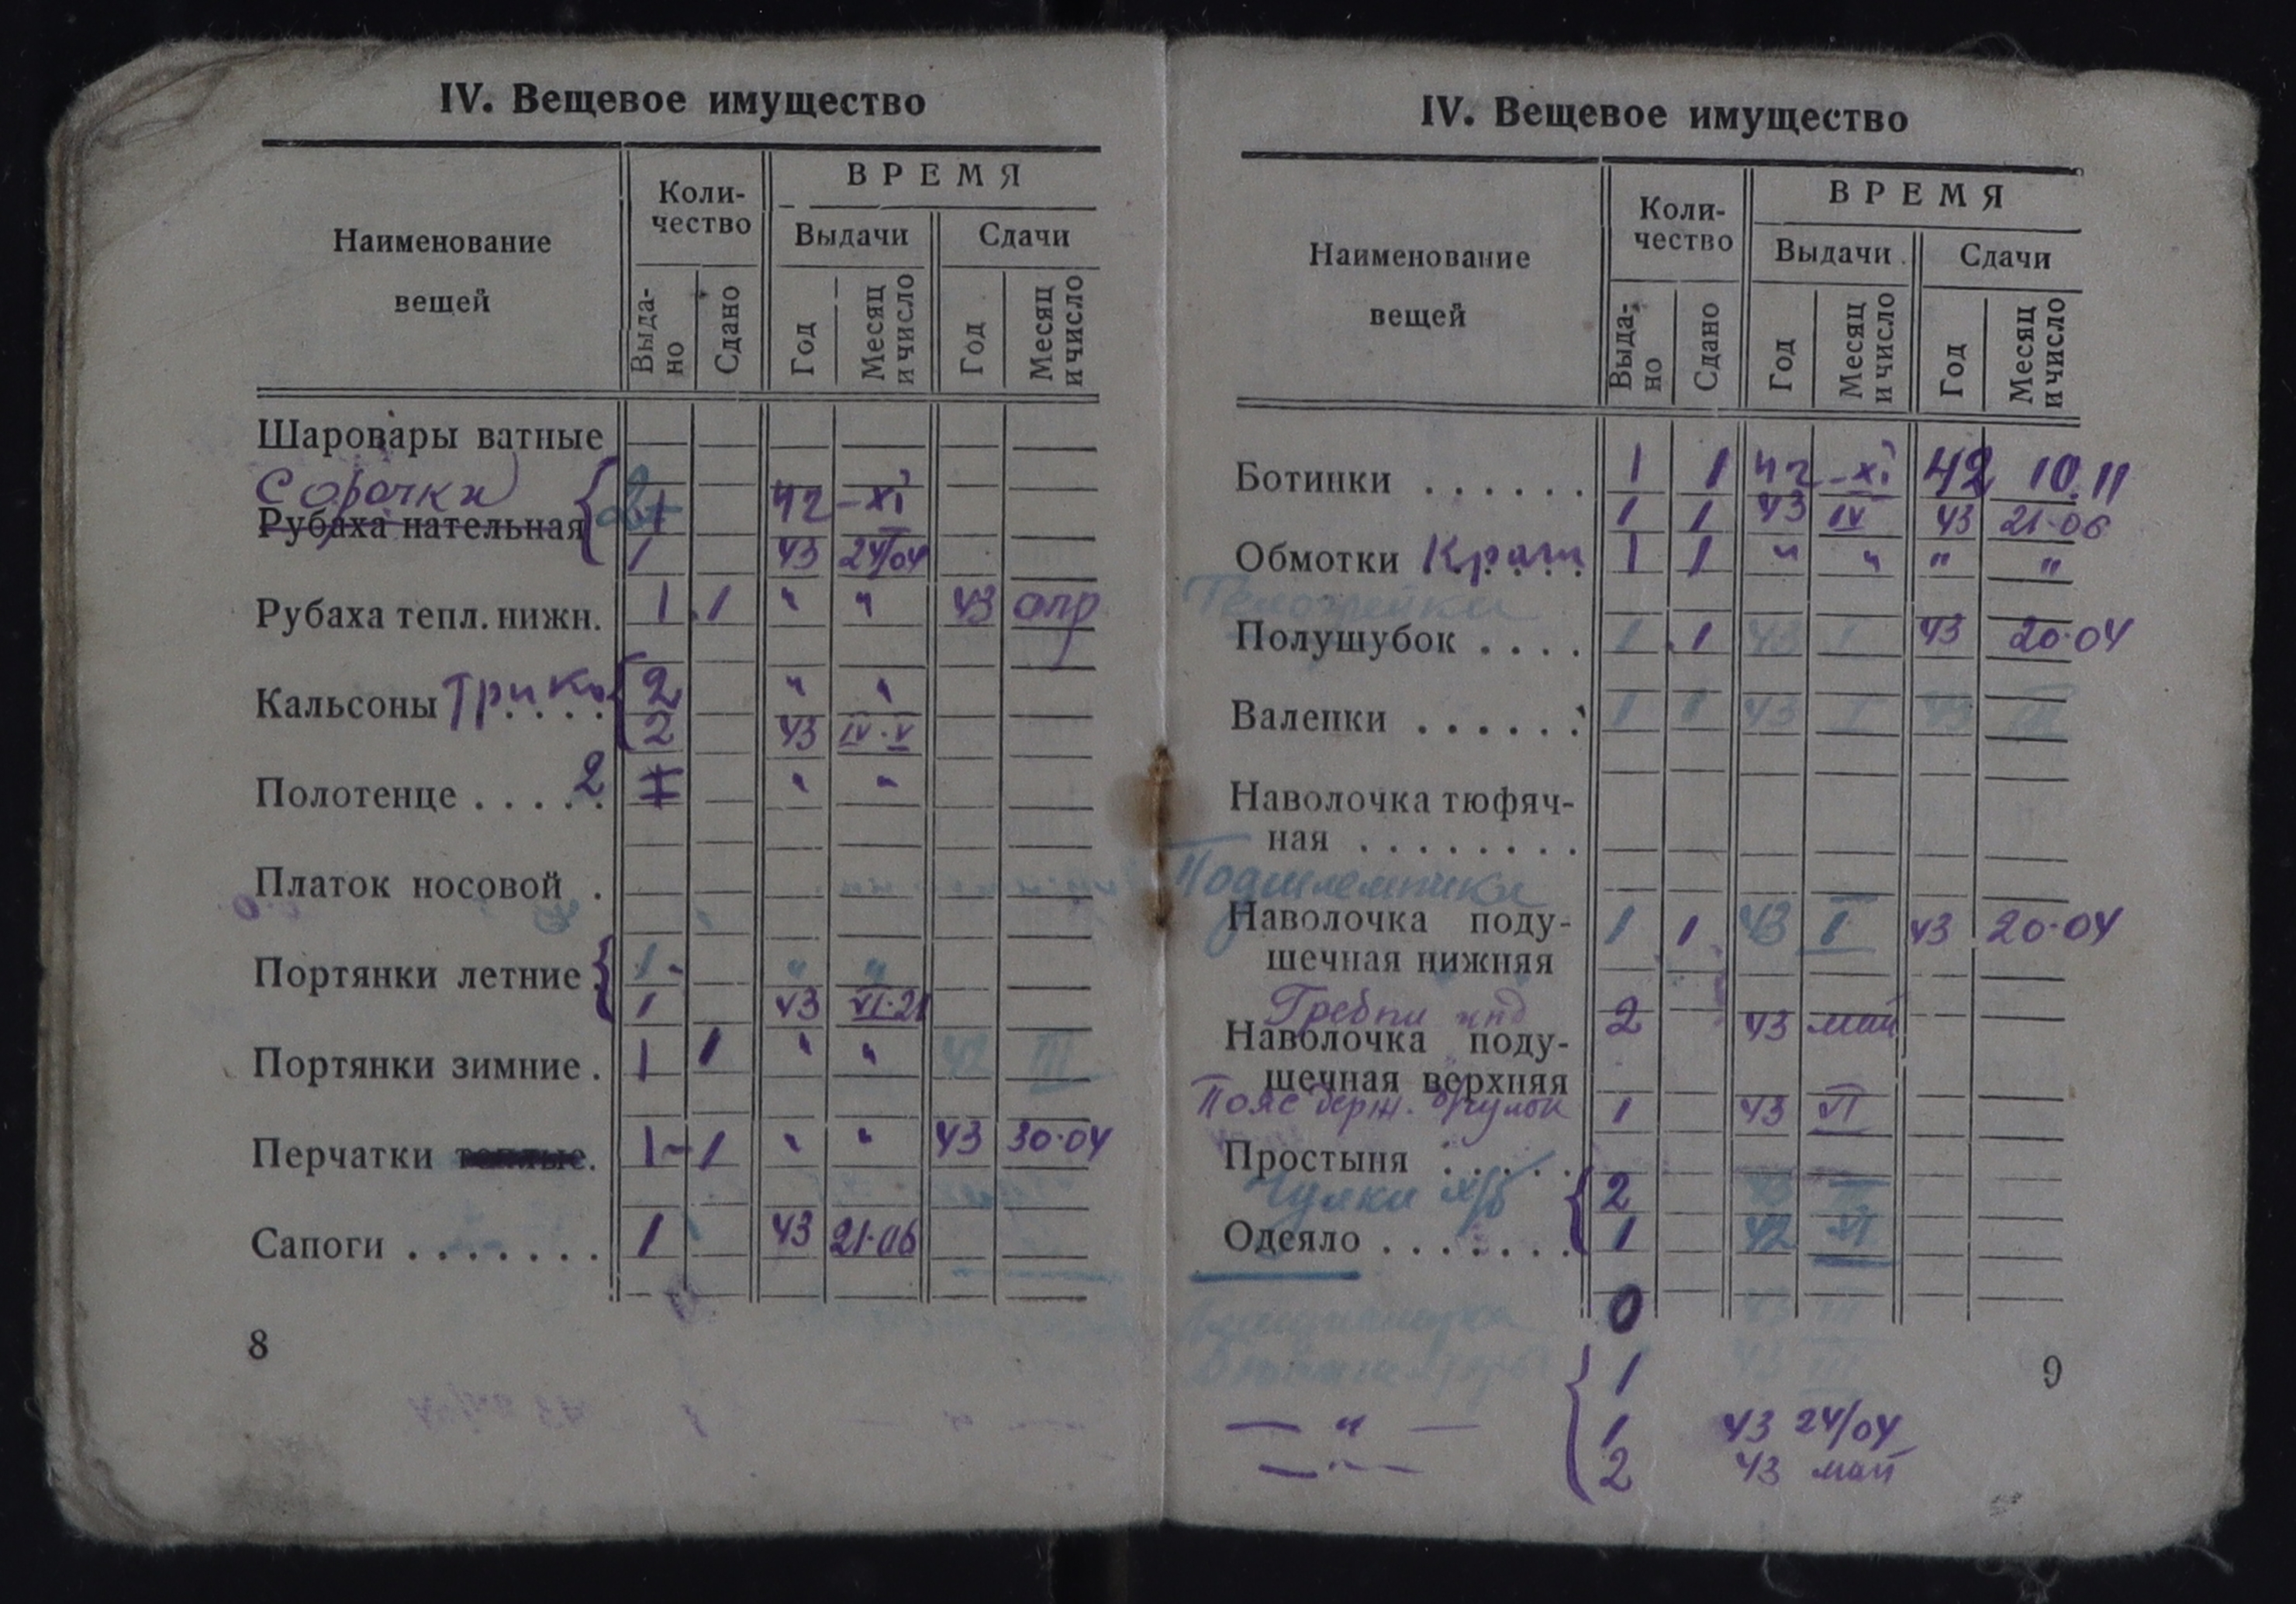 IV. Вещевое имущество
Наименование вещей
Коли-
чество
ВРЕМЯ
Выдачи Сдачи
Выда-
но
Сдано
Год
Месяц
и число
Год
Месяц
и число
Шаровары ватные
Сорочки 1 42 - XI
Рубаха нательная
1 43 24/04
Рубаха тепл. нижн. 1 1 " " 43 апр
Кальсоны трико 2 " "
2 43 IV-V
Полотенце . . . . . 2 " "
Платок носовой .
Портянки летние 1 - " "
1 43 VI-21
Портянки зимние . 1 1 " " 42 III
Перчатки теплые. 1 - 1 " " 43 30-04
Сапоги . . . . . . . 1 43 21-06
8
IV. Вещевое имущество
Наименование вещей
Коли-
чество
ВРЕМЯ
Выдачи Сдачи
Выда-
но
Сдано
Год
Месяц
и число
Год
Месяц
и число
Ботинки . . . . . . 1 1 42 - XI 42 10.11
1 1 43 IV 43 21-06
Обмотки 1 1 " " " "
Телогрейка
Полушубок . . . . 1 1 43 I 43 20-04
Валенки . . . . . . 1 1 43 I 43 III
Наволочка тюфяч-
ная . . . . . . . .
Подшлемники
Наволочка поду- 1 1 43 I 43 20-04
шечная нижняя
2 43 май
Наволочка поду-
шечная верхняя
Пояс держ. чулок 1 43 VI
Простыня . . . . .
Чулки х/б 2
Одеяло . . . . . . . 1 42 XI
0
1
— " — 1 43 24/04
— " — 2 43 май
9